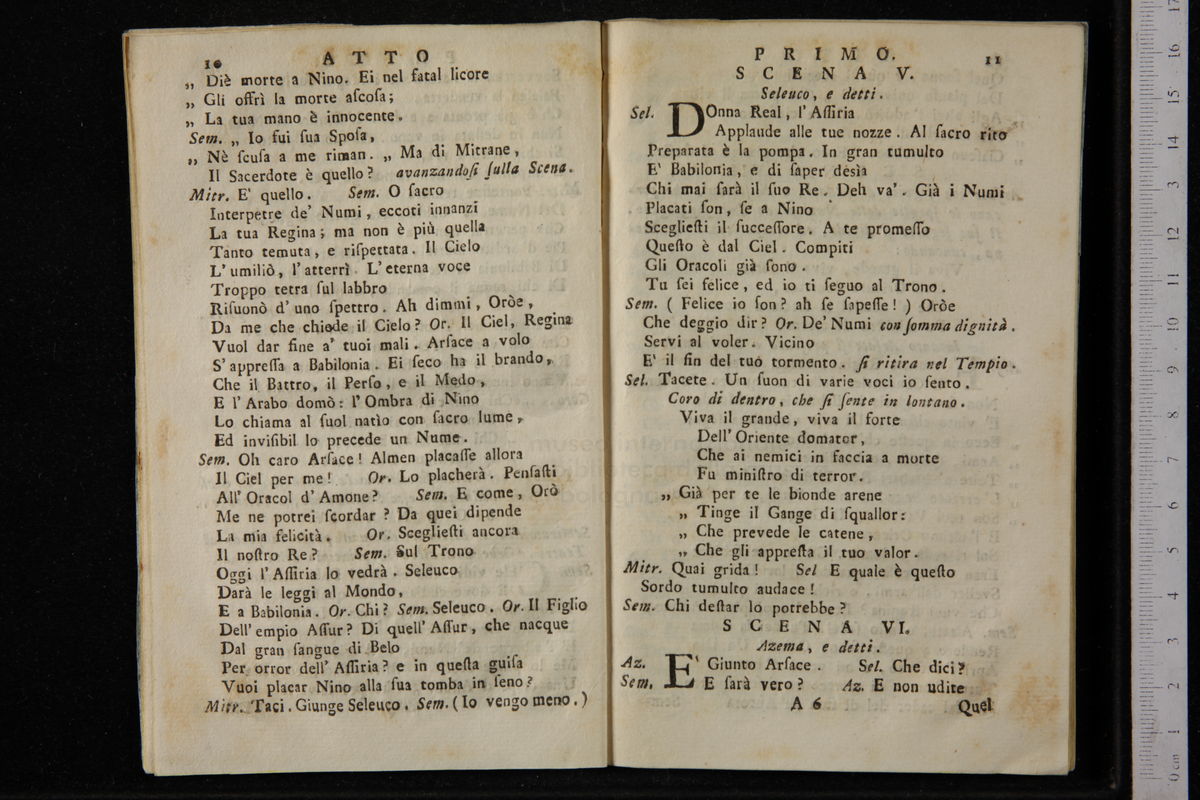 10 ATTO
„ Diè morte a Nino. Ei nel fatal licore
„ Gli offrì la morte aſcoſa;
„ La tua mano è innocente.
Sem. „ Io fui ſua Spoſa,
„ Nè ſcuſa a me riman. „ Ma di Mitrane,
Il Sacerdote è quello? avanzandoſi ſulla Scena.
Mitr. E' quello. Sem. O ſacro
Interpetre de' Numi, eccoti innanzi
La tua Regina; ma non è più quella
Tanto temuta, e riſpettata. Il Cielo
L' umiliò, l' atterrì. L' eterna voce
Troppo tetra ſul labbro
Riſuonò d' uno ſpettro. Ah dimmi, Oròe,
Da me che chiede il Cielo? Or. Il Ciel, Regina
Vuol dar fine a' tuoi mali. Arſace a volo
S' appreſſa a Babilonia. Ei ſeco ha il brando,
Che il Battro, il Perſo, e il Medo,
E l' Arabo domò: l' Ombra di Nino
Lo chiama al ſuol natìo con ſacro lume,
Ed inviſibil lo precede un Nume.
Sem. Oh caro Arſace! Almen placaſſe allora
Il Ciel per me! Or. Lo placherà. Penſaſti
All' Oracol d' Amone? Sem. E come, Orò
Me ne potrei ſcordar? Da quei dipende
La mia felicità. Or. Scegliеſti ancora
Il noſtro Re? Sem. Sul Trono
Oggi l' Aſſiria lo vedrà. Seleuco
Darà le leggi al Mondo,
E a Babilonia. Or. Chi? Sem. Seleuco. Or. Il Figlio
Dell' empio Aſſur? Di quell' Aſſur, che nacque
Dal gran ſangue di Belo
Per orror dell' Aſſiria? e in queſta guiſa
Vuoi placar Nino alla ſua tomba in ſeno?
Mitr. Taci. Giunge Seleuco. Sem. (Io vengo meno.)
PRIMO. 11
SCENA V.
Seleuco, e detti.
Sel. DOnna Real, l' Aſſiria
Applaude alle tue nozze. Al ſacro rito
Preparata è la pompa. In gran tumulto
E' Babilonia, e di ſaper desìa
Chi mai ſarà il ſuo Re. Deh va'. Già i Numi
Placati ſon, ſe a Nino
Sceglieſti il ſucceſſore. A te promeſſo
Queſto è dal Ciel. Compiti
Gli Oracoli già ſono.
Tu ſei felice, ed io ti ſeguo al Trono.
Sem. ( Felice io ſon? ah ſe ſapeſſe! ) Oròe
Che deggio dir? Or. De' Numi con ſomma dignità.
Servi al voler. Vicino
E' il fin del tuo tormento. ſi ritira nel Tempio.
Sel. Tacete. Un ſuon di varie voci io ſento.
Coro di dentro, che ſi ſente in lontano.
Viva il grande, viva il forte
Dell' Oriente domator,
Che ai nemici in faccia a morte
Fu miniſtro di terror.
„ Già per te le bionde arene
„ Tinge il Gange di ſquallor:
„ Che prevede le catene,
„ Che gli appreſta il tuo valor.
Mitr. Quai grida! Sel E quale è queſto
Sordo tumulto audace!
Sem. Chi deſtar lo potrebbe?
SCENA VI.
Azema, e detti.
Az. E' Giunto Arſace. Sel. Che dici?
Sem. E ſarà vero? Az. E non udite
A 6 Quel